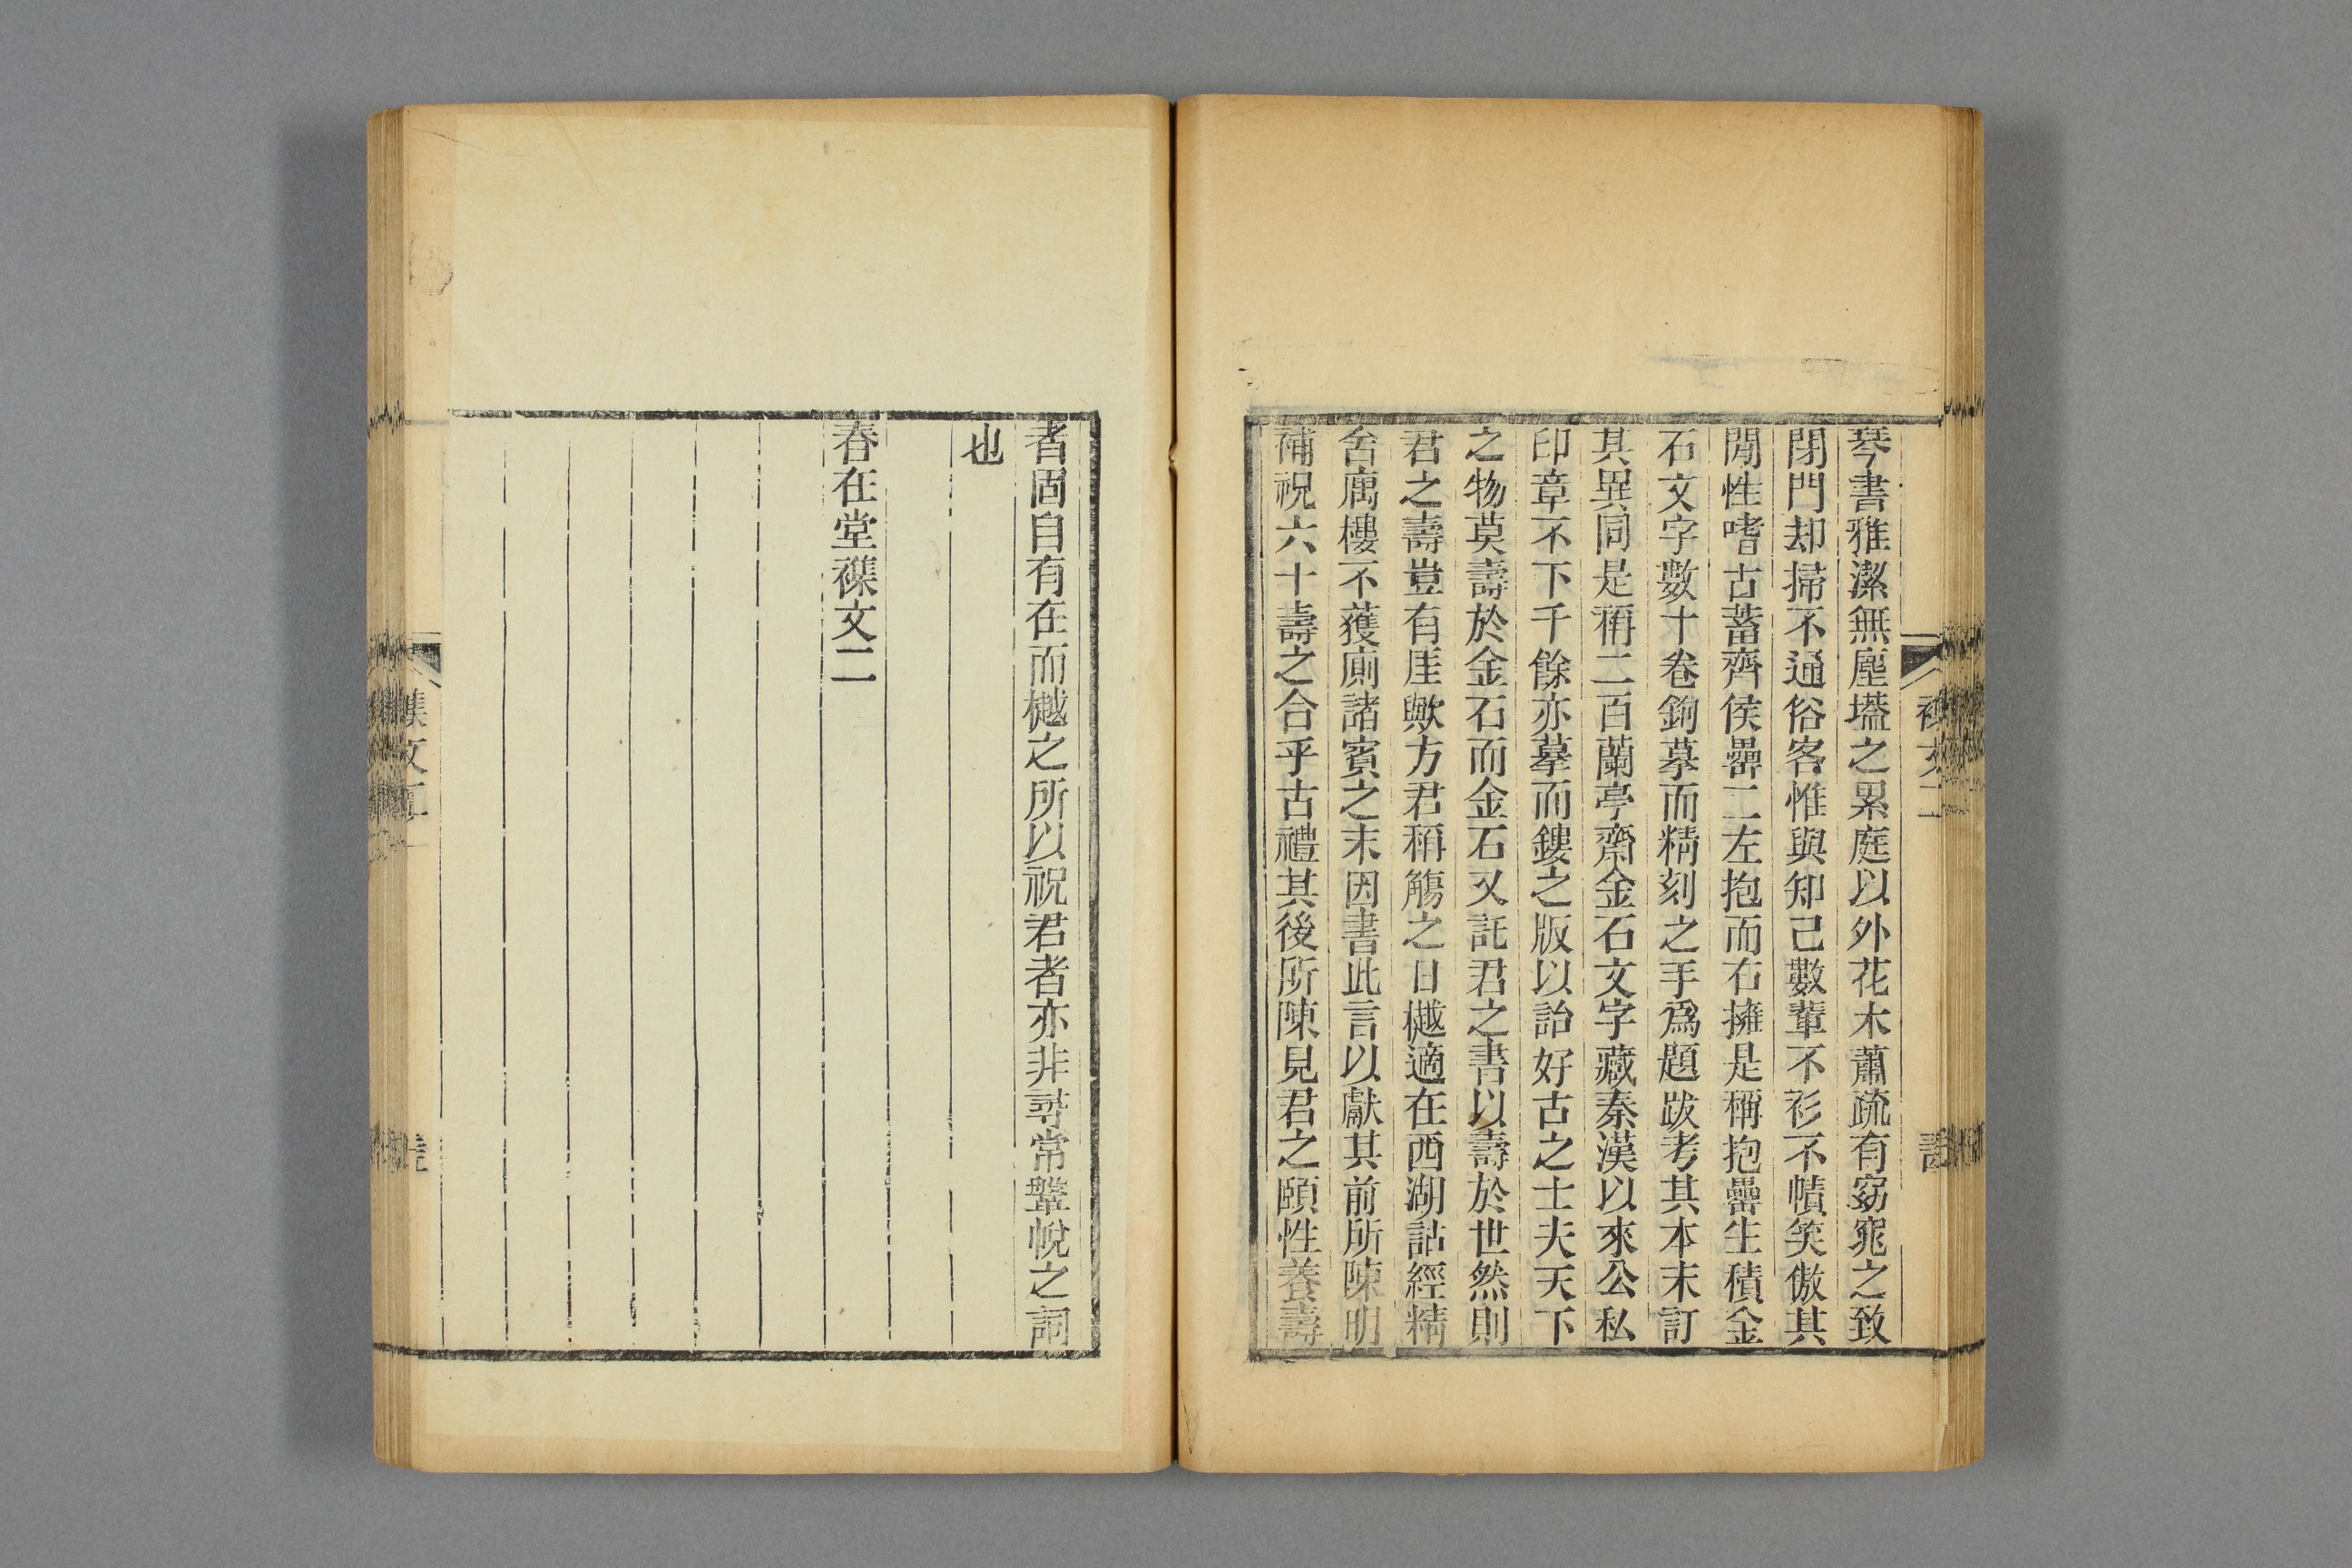 琴書雅潔無塵壒之累庭以外花木蕭疏有窈窕之致
閉門却掃不通俗客惟與知己數輩不衫不幘笑傲其
閒性嗜古蓄齊侯罍二左抱而右擁是稱抱罍生積金
石文字數十卷鉤摹而精刻之手爲題跋考其本末訂
其異同是稱二百蘭亭齋金石文字藏秦漢以來公私
印章不下千餘亦摹而鏤之版以詒好古之士夫天下
之物莫壽於金石而金石又託君之書以壽於世然則
君之壽豈有厓歟方君稱觴之日樾適在西湖詁經精
舍寓樓不獲廁諸賓之末因書此言以獻其前所陳明
補祝六十壽之合乎古禮其後所陳見君之頤性養壽
者固自有在而樾之所以祝君者亦非尋常鞶帨之詞
也
春在堂襍文二